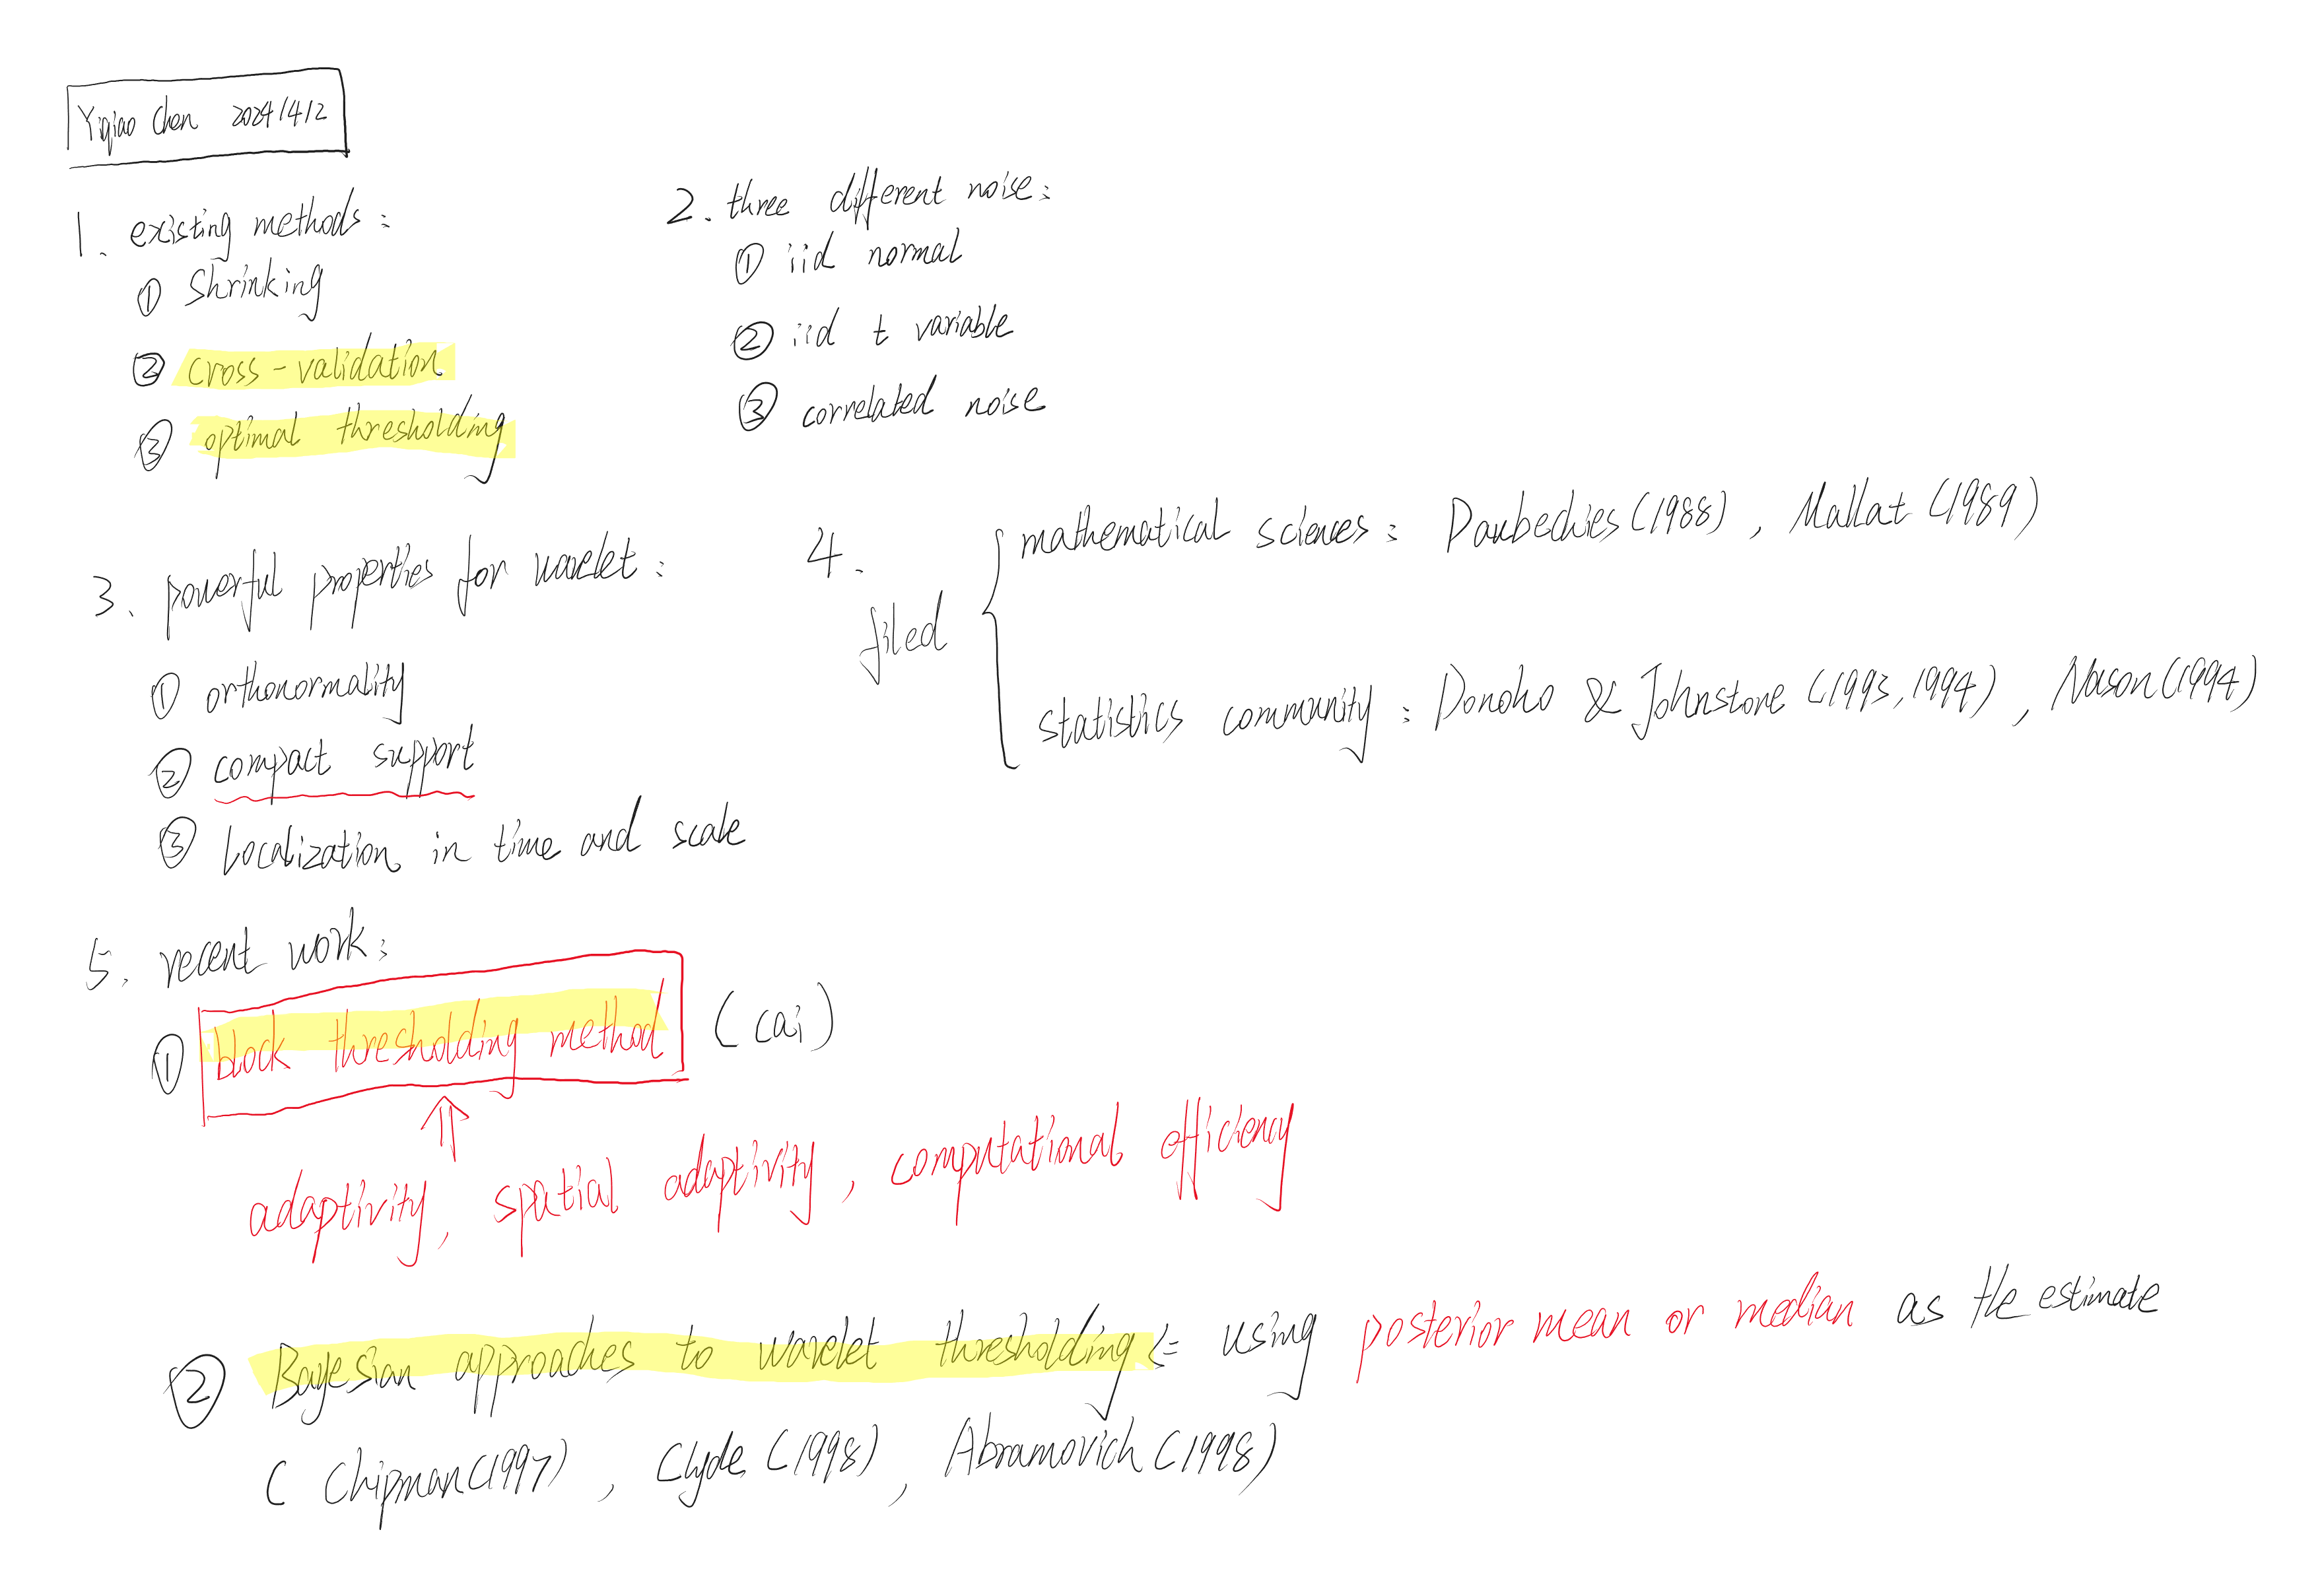 Yiqiao Chen 2024/4/2
1. existing methods:
① Shrinking
② cross-validation
③ optimal thresholding
2. three different noise:
① iid normal
② iid t variable
③ correlated noise
3. powerful properties for wavelet:
① orthonormality
② compact support
③ Localization in time and scale
4.
filed
mathematical sciences: Daubechies (1988), Mallat (1989)
statistics community: Donoho & Johnstone (1993, 1994), Nason (1994)
5. recent work:
① block thresholding method (cai)
↑
adaptivity, spatial adaptivity, computational efficiency
② Bayesian approaches to wavelet thresholding ⇐ using posterior mean or median as the estimate
( Chipman (1997), Clyde (1998), Abramovich (1998)